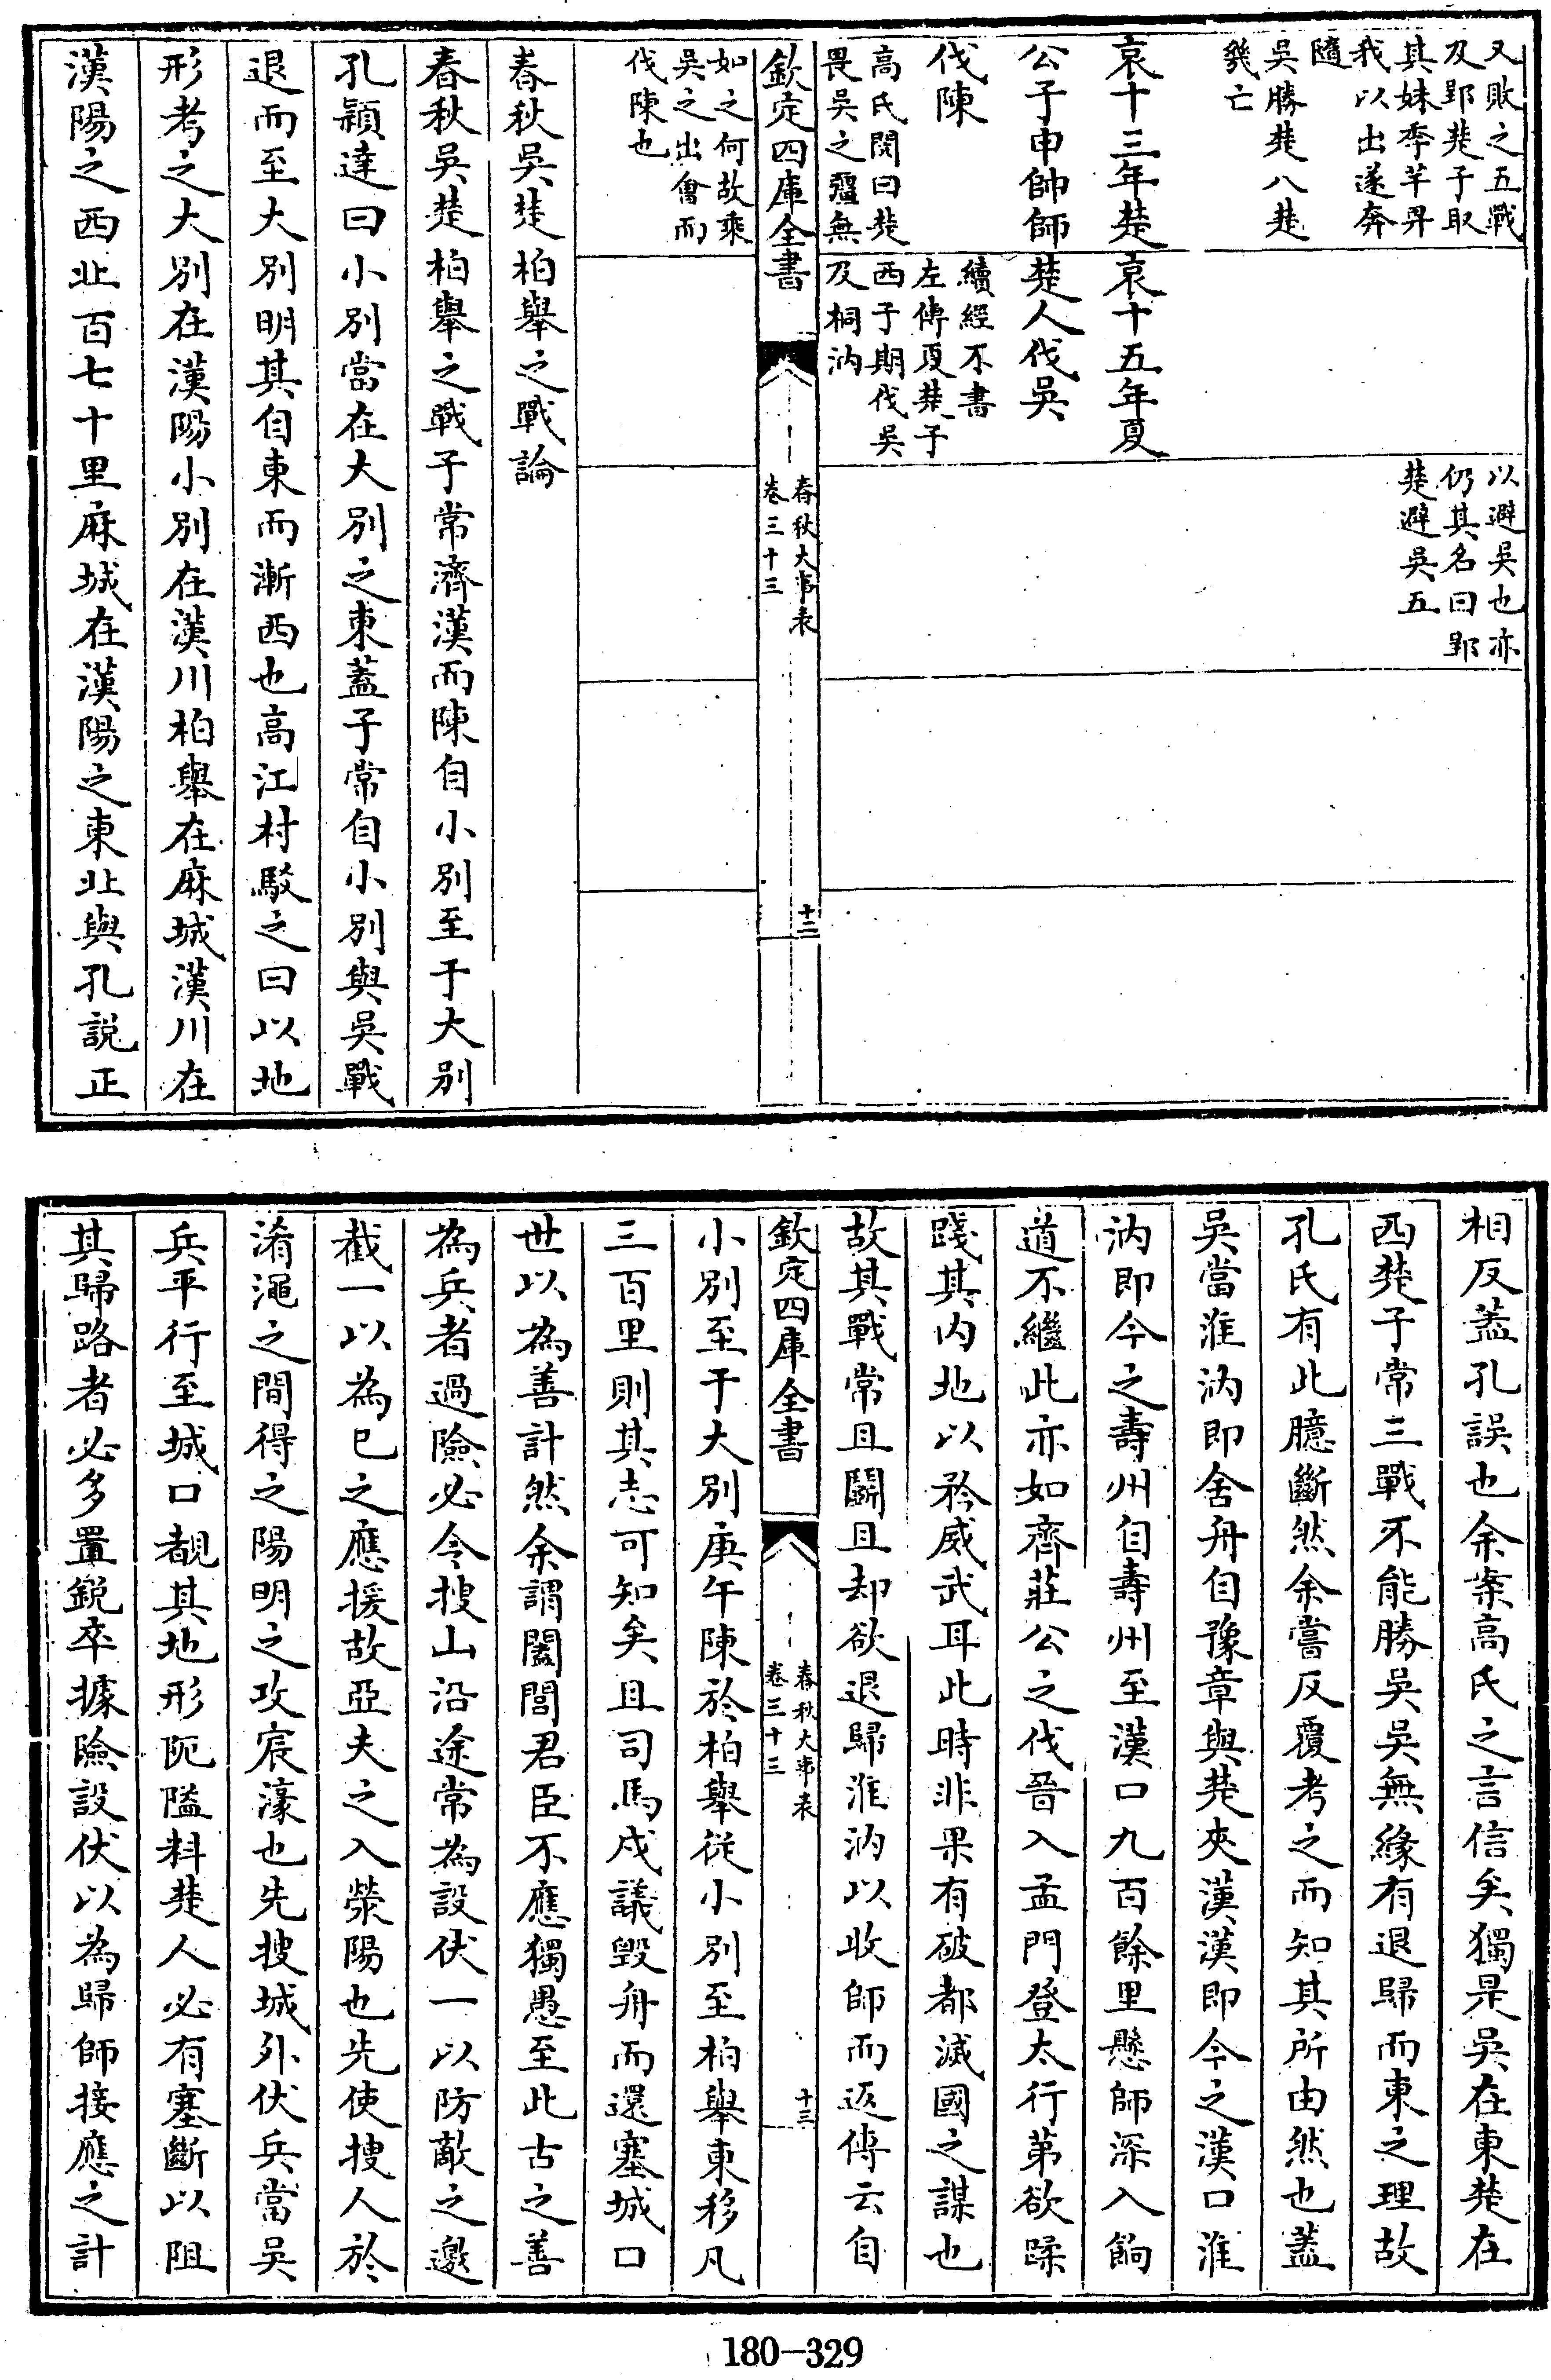 又敗之五戰
及郢楚子取
其妹季羋畀
我以出遂奔
隨
吳勝楚八楚
幾亡
以避吳也亦
仍其名曰郢
楚避吳五
哀十三年楚
公子申帥師
伐陳
高氏閌曰楚
畏吳之彊無
哀十五年夏
楚人伐吳
續經不書
左傳夏楚子
西子期伐吳
及桐汭
欽定四庫全書
春秋大事表
卷三十三
十二
如之何故乘
吳之出會而
伐陳也
春秋吳楚柏舉之戰論
春秋吳楚柏舉之戰子常濟漢而陳自小別至于大別
孔穎達曰小別當在大別之東蓋子常自小別與吳戰
退而至大別明其自東而漸西也高江村駁之曰以地
形考之大別在漢陽小別在漢川柏舉在麻城漢川在
漢陽之西北百七十里麻城在漢陽之東北與孔說正
相反蓋孔誤也余案高氏之言信矣獨是吳在東楚在
西楚子常三戰不能勝吳吳無緣有退歸而東之理故
孔氏有此臆斷然余嘗反覆考之而知其所由然也蓋
吳當淮汭即舍舟自豫章與楚夾漢漢即今之漢口淮
汭即今之壽州自壽州至漢口九百餘里懸師深入餉
道不繼此亦如齊莊公之伐晉入孟門登太行第欲蹂
踐其內地以矜威武耳此時非果有破都滅國之謀也
故其戰常且鬭且却欲退歸淮汭以收師而返傳云自
欽定四庫全書
春秋大事表
卷三十三
十三
小別至于大別庚午陳於柏舉從小別至柏舉東移凡
三百里則其志可知矣且司馬戍議毀舟而還塞城口
世以為善計然余謂闔閭君臣不應獨愚至此古之善
為兵者過險必令搜山沿途常為設伏一以防敵之邀
截一以為已之應援故亞夫之入滎陽也先使搜人於
淆澠之間得之陽明之攻宸濠也先搜城外伏兵當吳
兵平行至城口覩其地形阨隘料楚人必有塞斷以阻
其歸路者必多置銳卒據險設伏以為歸師接應之計
180-329